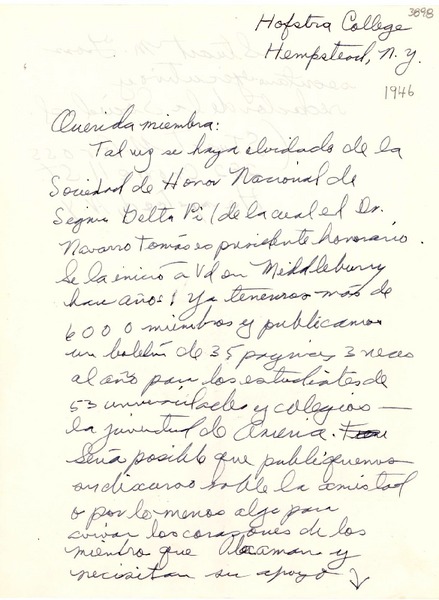 3898
Hofstra College
Hempstead, N. Y.
1946
Querida miembra:
Tal vez se haya olvidado de la
Sociedad de Honor Nacional de
Sigma Delta Pi (de la cual el Dr.
Navarro Tomás es presidente honorario.
Se la inició a Vd en Middlebury
hace años! Ya tenemos más de
6000 miembros y publicamos
un boletín de 35 paginas 3 veces
al año para los estudiantes de
53 universidades y colegios —
la juventud de America.
Sería posible que publiquemos
su discurso sobre la amistad
o por lo menos algo para
avivar los corazones de los
miembros que aman y
necesitan su apoyo ↓